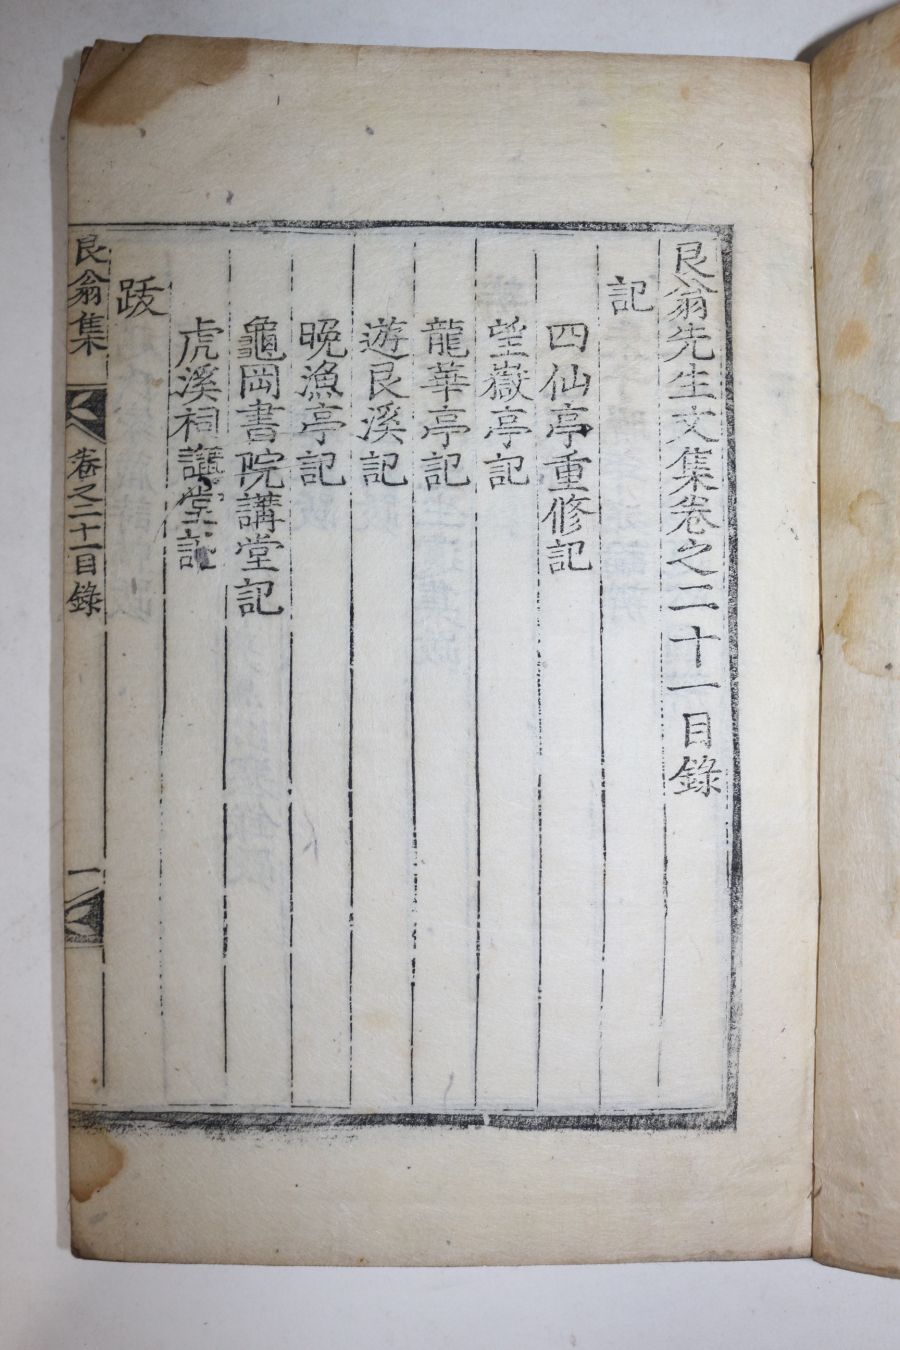 艮翁先生文集卷之二十一目錄
記
四仙亭重修記
望嶽亭記
龍華亭記
遊艮溪記
晚漁亭記
龜岡書院講堂記
虎溪祠講堂記
跋
艮翁集
卷之二十一目錄
一